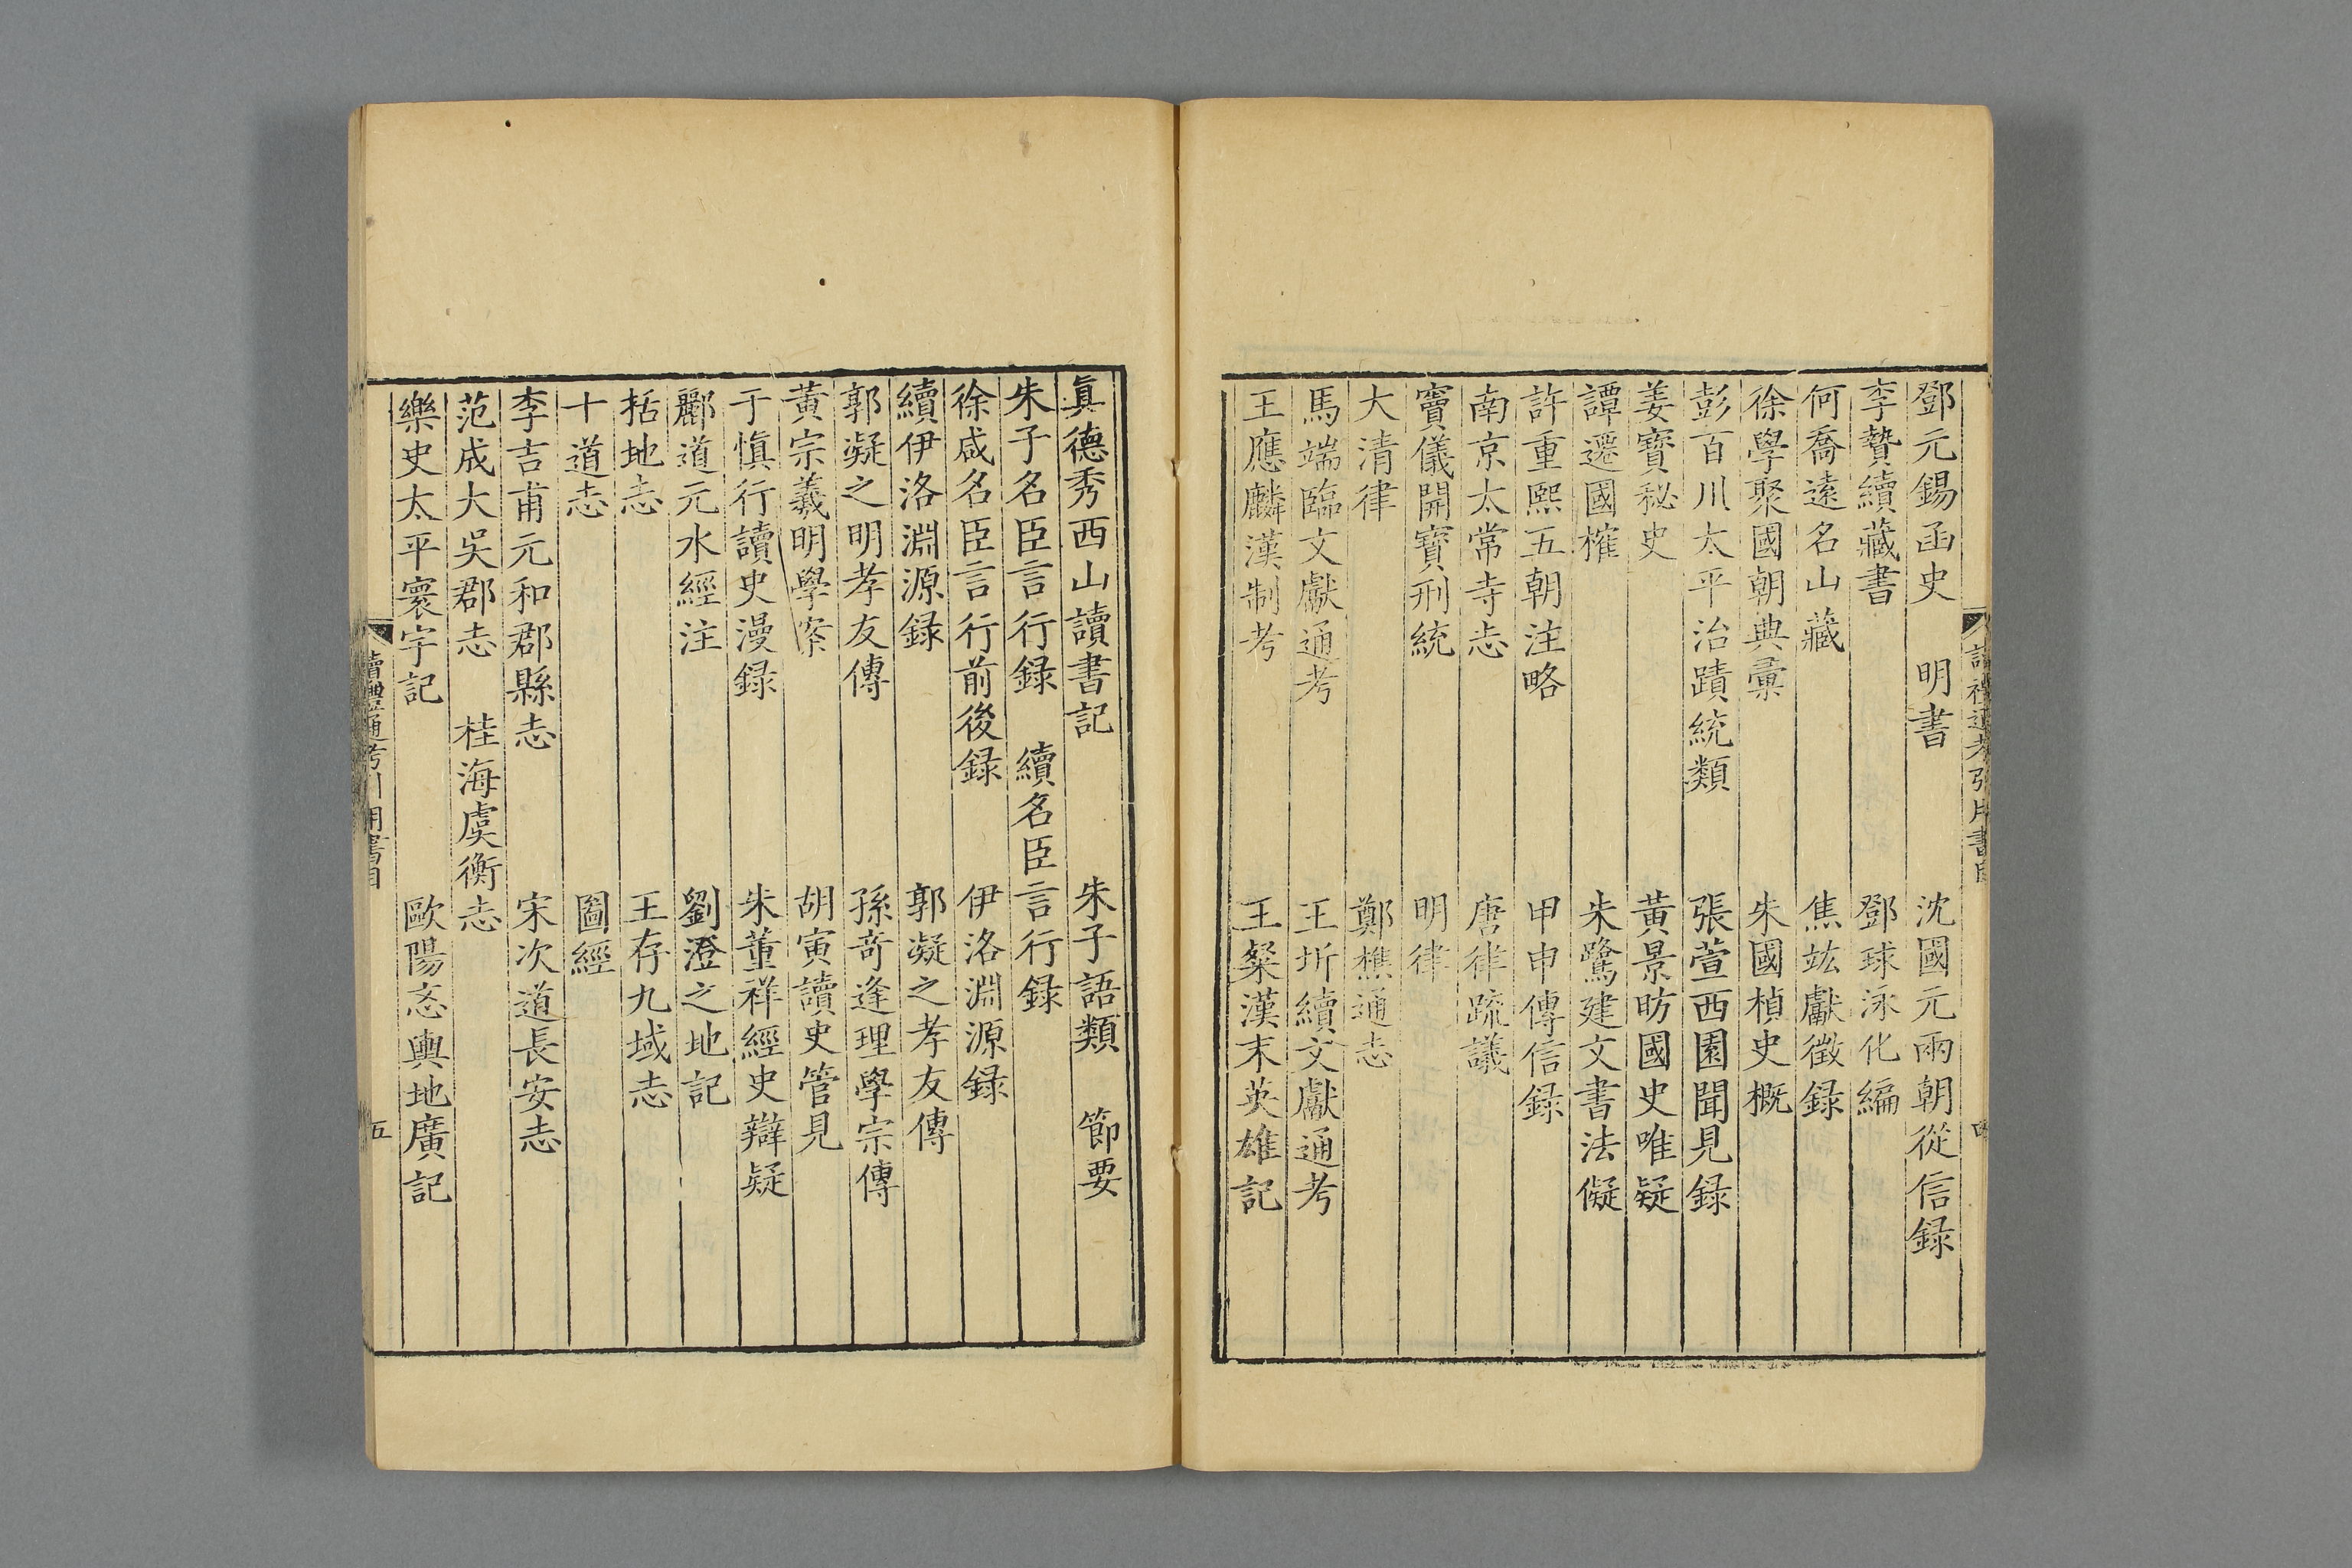 鄧元錫函史 明書 沈國元兩朝從信録
李贄續藏書 鄧球泳化編
何喬遠名山藏 焦竑獻徵録
徐學聚國朝典彙 朱國楨史概
彭百川太平治蹟統類 張萱西園聞見録
姜寶秘史 黃景昉國史唯疑
譚遷國榷 朱鷺建文書法儗
許重熙五朝注略 甲申傳信録
南京太常寺志 唐律疏議
竇儀開寶刑統 明律
大清律 鄭樵通志
馬端臨文獻通考 王圻續文獻通考
王應麟漢制考 王粲漢末英雄記
眞德秀西山讀書記 朱子語類 節要
朱子名臣言行録 續名臣言行録
徐咸名臣言行前後録 伊洛淵源録
續伊洛淵源録 郭凝之孝友傳
郭凝之明孝友傳 孫奇逢理學宗傳
黃宗羲明學案 胡寅讀史管見
于慎行讀史漫録 朱董祥經史辯疑
酈道元水經注 劉澄之地記
括地志 王存九域志
十道志 圖經
李吉甫元和郡縣志 宋次道長安志
范成大吳郡志 桂海虞衡志
樂史太平寰宇記 歐陽忞輿地廣記
讀禮通考引用書目 五